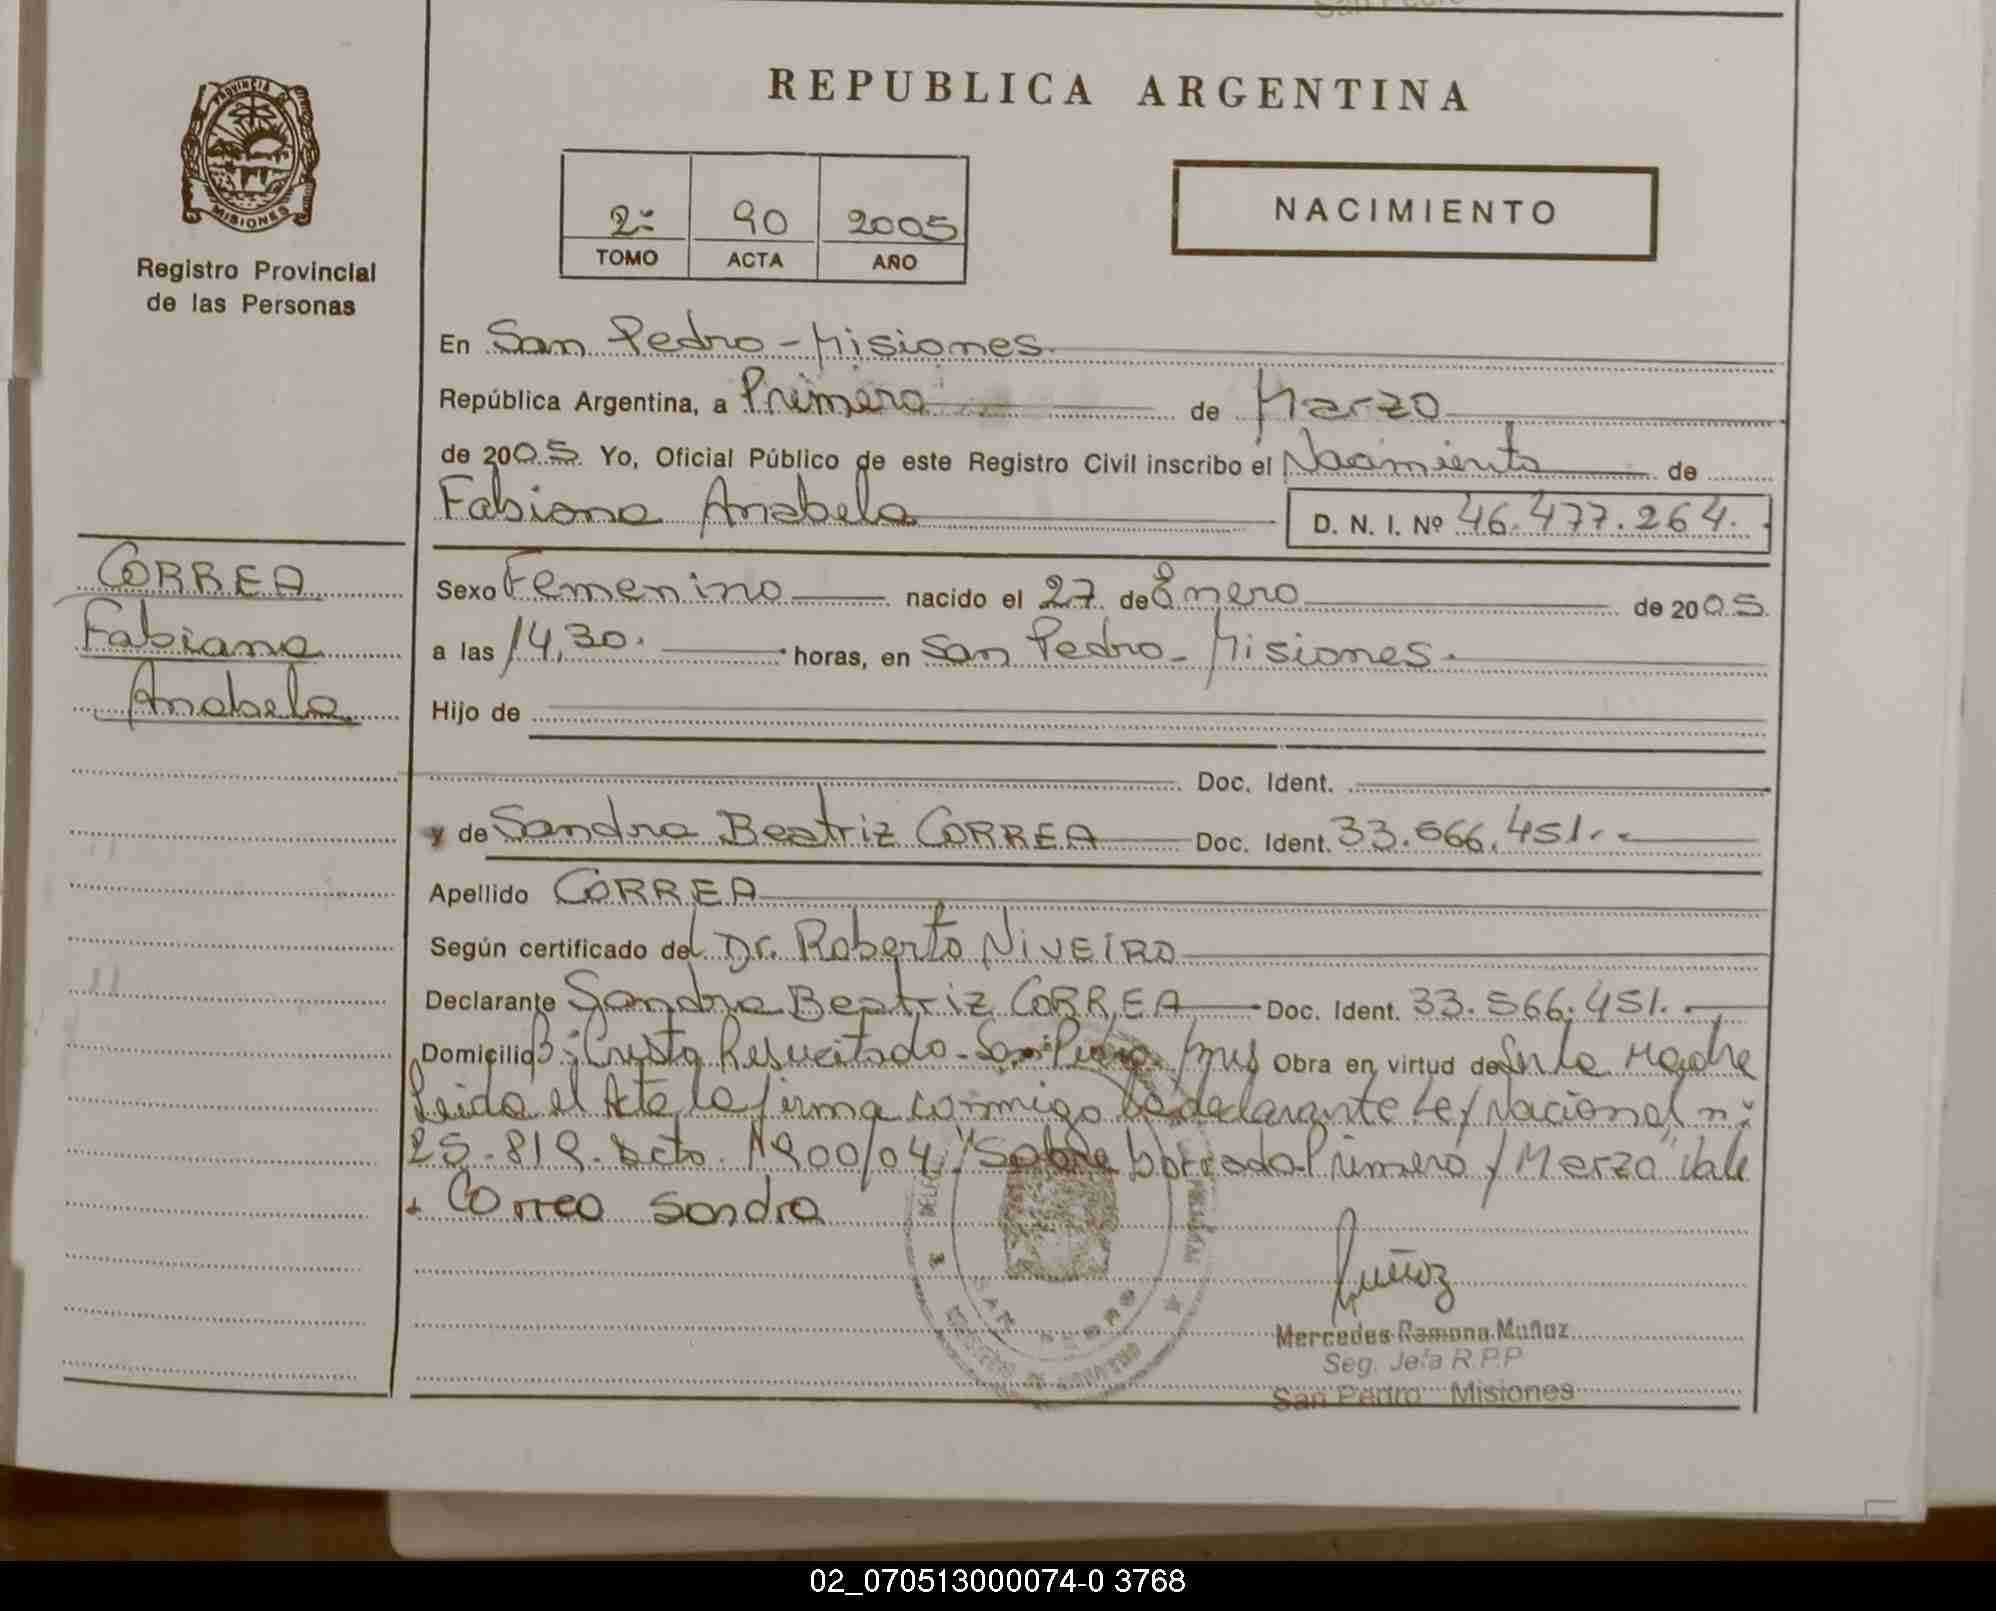 PROVINCIA DE
MISIONES
Registro Provincial
de las Personas
REPUBLICA ARGENTINA
2º 90 2005
TOMO ACTA AÑO
NACIMIENTO
En San Pedro - Misiones.
República Argentina, a Primero de Marzo
de 2005. Yo, Oficial Público de este Registro Civil inscribo el Nacimiento de
Fabiana Anabela D. N. I. Nº 46.477.264.
CORREA
Fabiana
Anabela
Sexo Femenino nacido el 27 de Enero de 2005
a las 14,30. horas, en San Pedro - Misiones.
Hijo de
Doc. Ident.
y de Sandra Beatriz CORREA Doc. Ident. 33.566.451.-
Apellido CORREA
Según certificado del Dr. Roberto NIVEIRO
Declarante Sandra Beatriz CORREA Doc. Ident. 33.566.451.-
Domicilio Bº Cristo Resucitado - San Pedro Mnes Obra en virtud de Ser la Madre
Leida el Acta la firma conmigo la declarante Ley Nacional nº
25.819. Dcto. 1900/04. "Sobre borrado Primero / Marzo" Vale
Correa Sandra
Muñoz
Mercedes Ramona Muñoz
Seg. Jefa R.P.P
San Pedro Misiones
SAN PEDRO
02_070513000074-0 3768